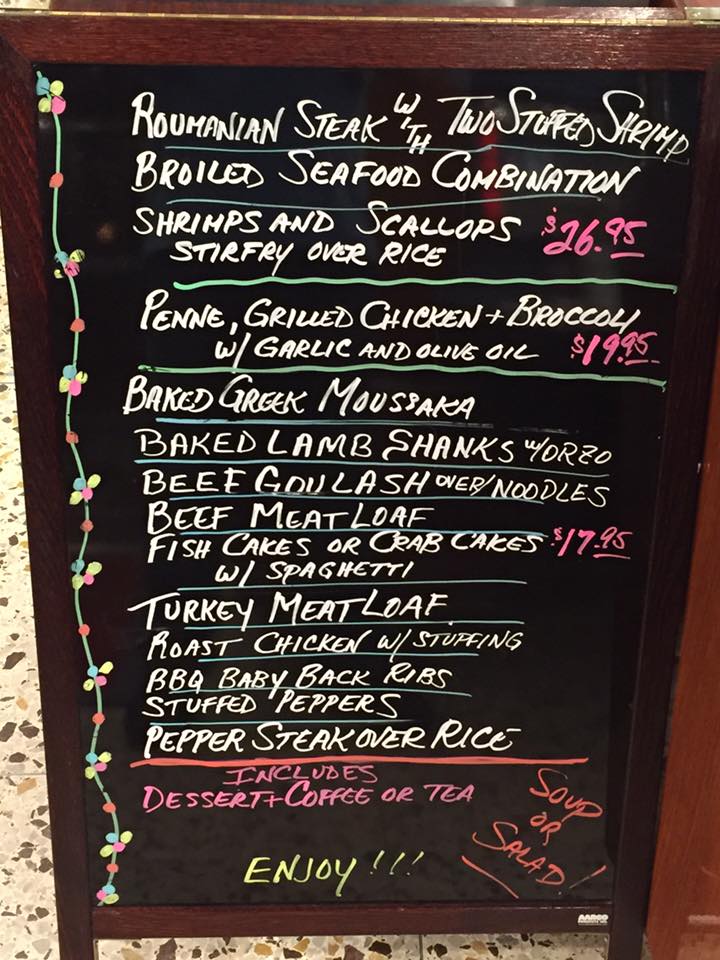 ROUMANIAN STEAK WITH TWO STUFFED SHRIMP
BROILED SEAFOOD COMBINATION
SHRIMPS AND SCALLOPS $26.95
STIRFRY OVER RICE
PENNE, GRILLED CHICKEN + BROCCOLI
W/ GARLIC AND OLIVE OIL $19.95
BAKED GREEK MOUSSAKA
BAKED LAMB SHANKS W/ORZO
BEEF GOULASH OVER/NOODLES
BEEF MEATLOAF
FISH CAKES OR CRAB CAKES $17.95
W/ SPAGHETTI
TURKEY MEATLOAF
ROAST CHICKEN W/ STUFFING
BBQ BABY BACK RIBS
STUFFED PEPPERS
PEPPER STEAK OVER RICE
INCLUDES
DESSERT + COFFEE OR TEA
SOUP
OR
SALAD!
ENJOY!!!
AARCO